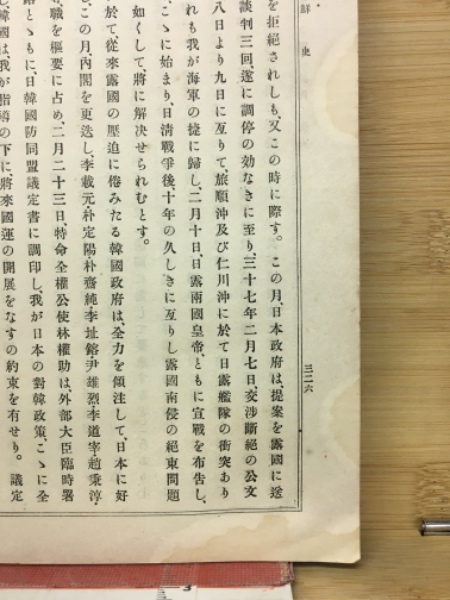 鮮史
三二六
を拒絕されしも、又この時に際す。この月、日本政府は、提案を露國に送
談判三回、遂に調停の効なきに至り、三十七年二月七日、交涉斷絕の公文
八日より九日に亙りて、旅順沖及び仁川沖に於て日露艦隊の衝突あり
れも我が海軍の捷に歸し、二月十日、日露兩國皇帝、ともに宣戰を布吿し、
こゝに始まり、日淸戰爭後、十年の久しきに亙りし露國南侵の絕東問題
如くして、將に解決せられむとす。
於て從來露國の壓迫に倦みたる韓國政府は、全力を傾注して、日本に好
この月、內閣を更迭し、李載元朴定陽朴齋純李址鎔尹雄烈李道宰趙秉淳
職を樞要に占め、二月二十三日、特命全權公使林權助は、外部大臣臨時署
とゝもに、日韓國防同盟議定書に調印し、我が日本の對韓政策、こゝに全
韓國は我が指導の下に、將來國運の開展をなすの約束を有せり。議定